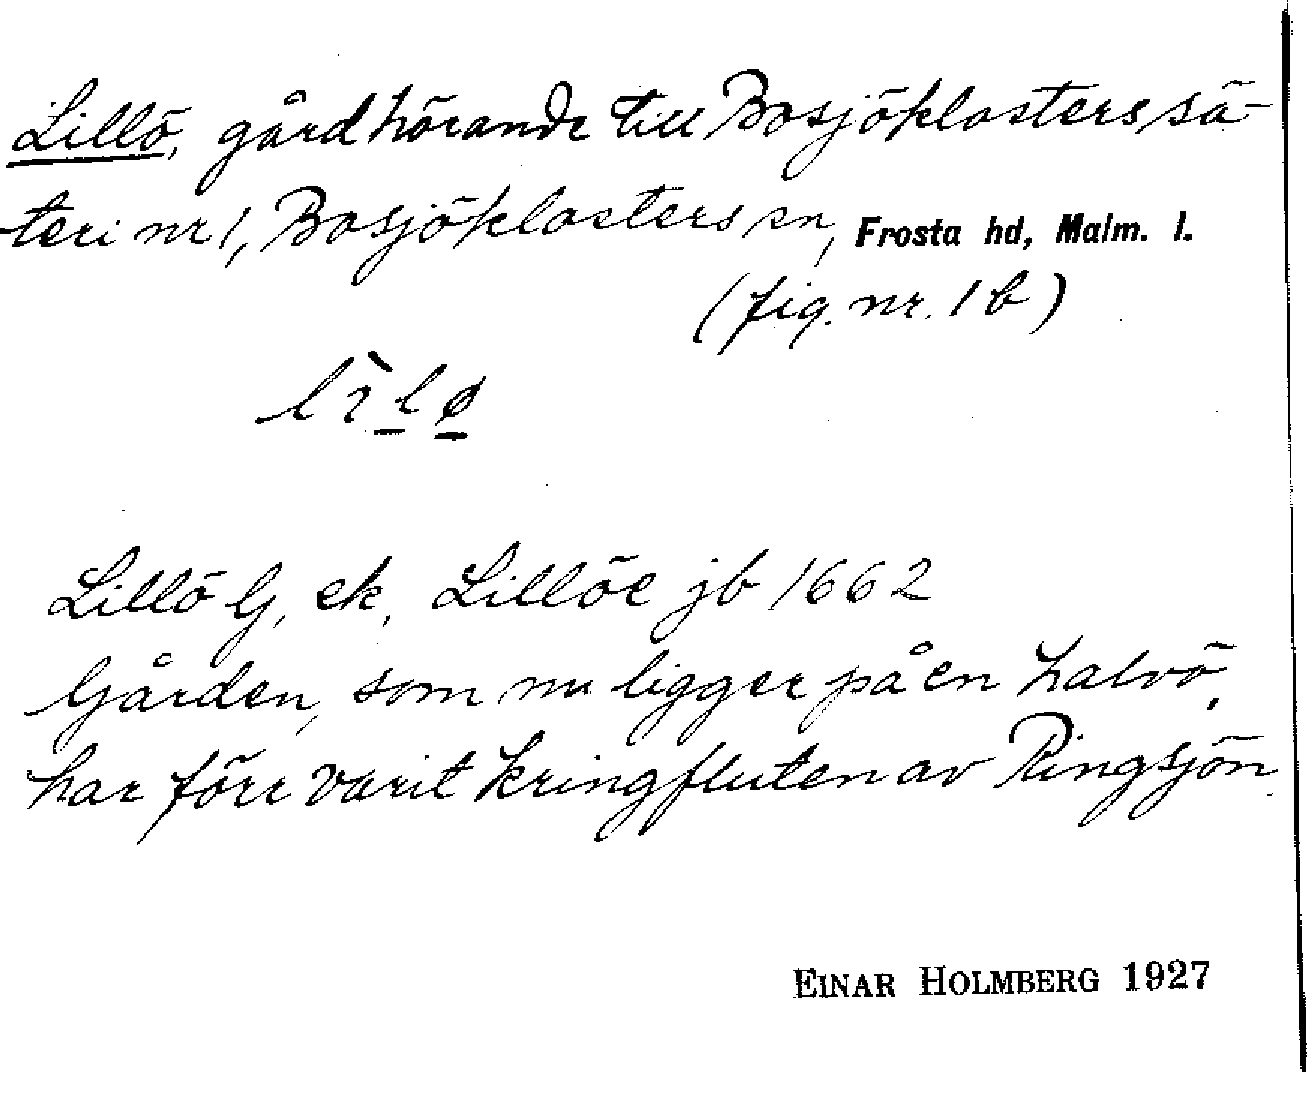 Lillö, gård hörande till Bosjöklosters sä-
teri nr 1, Bosjöklosters sn, Frosta hd, Malm. l.
(fig. nr. 1 b)
Lillö G, ek, Lillöe jb 1662
Gården, som nu ligger på en halvö,
har förr varit kringfluten av Ringsjön.
EINAR HOLMBERG 1927